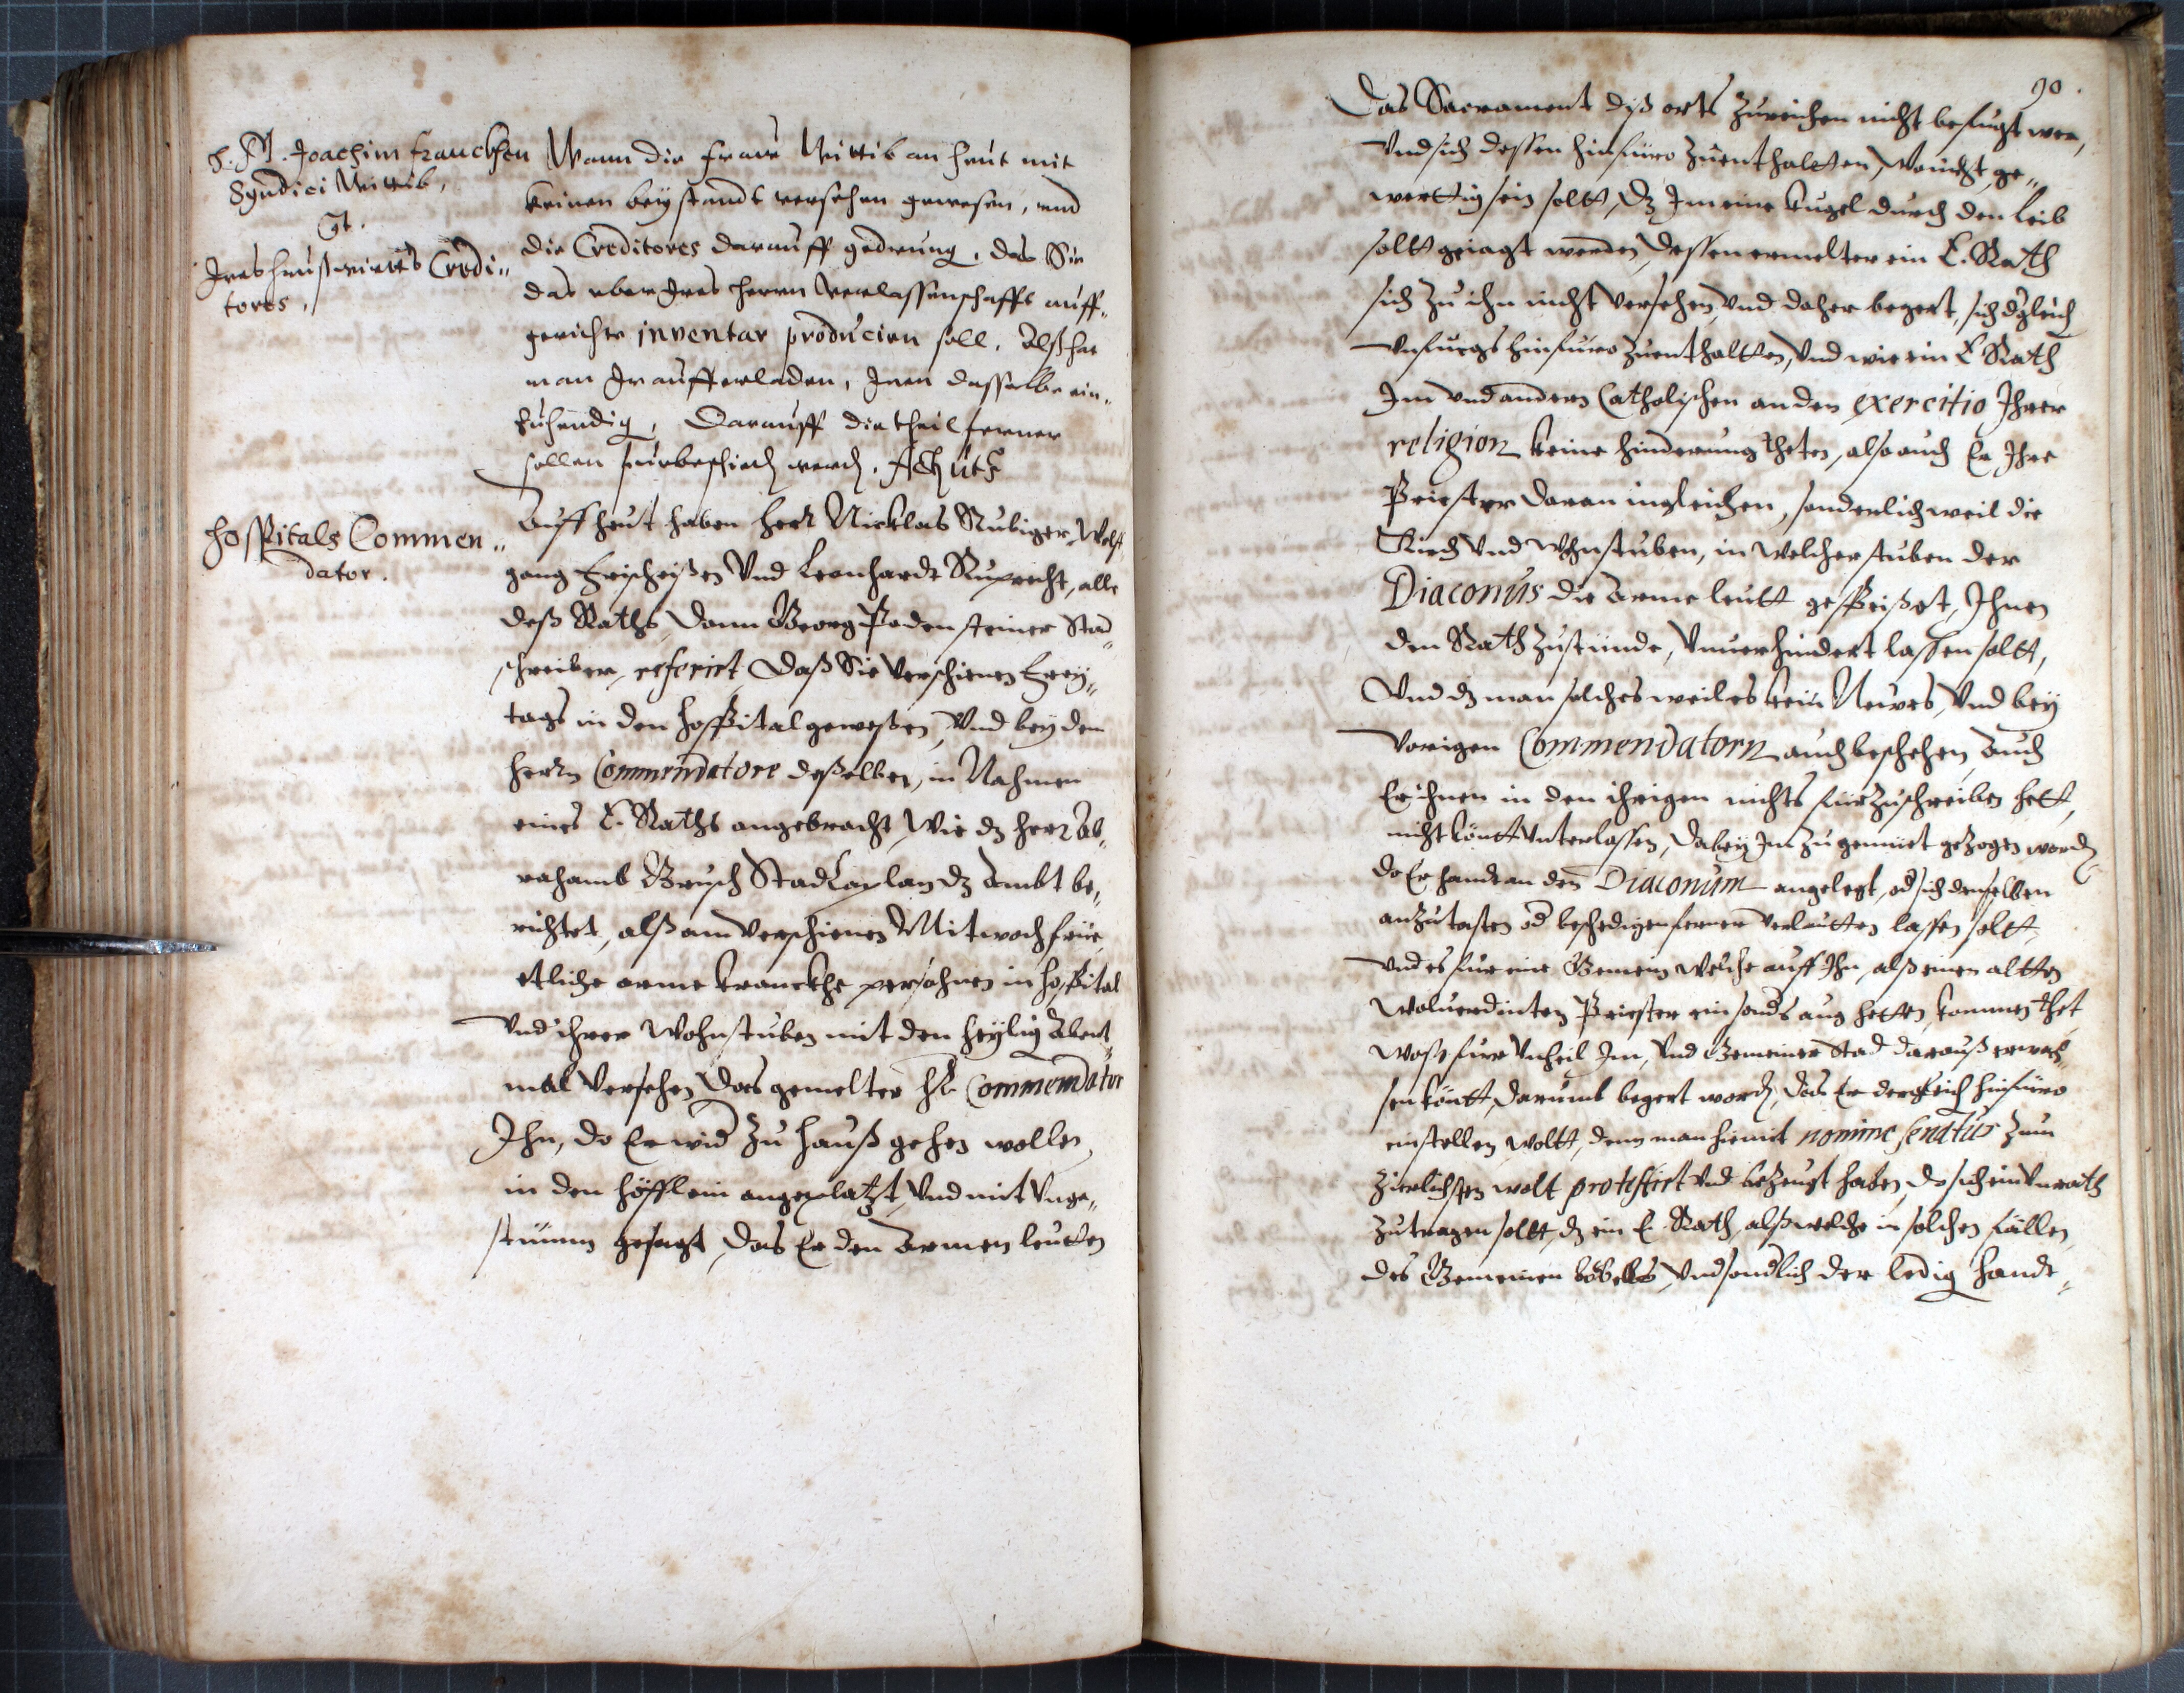 H. M. Joachim Franckhen
Syndici Wittib,
Ct.
Ires haußwirtts Credi„
tores,
Wann die Fraw Wittib an heut mit
keinen beystandt versehen gewesen, und
die Creditores darauff gedrung. das Sie
das uber Ires herrn Verlassenschafft auff„
gerichte inventar producirn soll. Alß hat
man Ir aufferladen, Inen dasselbe ein„
zuhendig, Darauff die theil ferner
sollen fürbeschied werd. Act. ut s.
Hospitals Commen„
dator.
Auff heut haben Herr Nicklas Rubiger, Wolff„
gang Frischeißen Vnd Leonhardt Ruprecht, alle
deß Raths, dann Georg Padensteiner Stad„
schreiber, referirt, daß Sie Verschienen Frey„
tags in den Hospital geweßen, Vnd bey dem
herrn Commendatore deßelben, in Nahmen
eines E. Raths angebracht, Wie dz Herr Ab„
rahamb Grusch StadCaplan dz Ambt be„
richtet, alß am Verschienen Mitwoch früe
etliche arme kranckhe persohnen in Hospital
Vnd ihrer Wohnstuben mit den heylig Abent„
mal Versehen, das gemelter Hr. Commendator
Ihn, do Er wid zu hauß gehen wollen
in den höfflein angeplatzt, Vnd mit Vnge„
stümm gesagt, das Er den Armen leutten
90.
Das Sacrament diß orts zureichen nicht befugt wer,
Vnd sich dessen hinfüro zuenthaltten, Wo nicht, ge„
werttig sein soltt, dz Im eine kugel durch den Leib
soltt geiagt werden, dessen ermelter ein E. Rath
sich zu ihn nicht Versehen, Vnd daher begert, sich dgleich
Vnfuegs hinfüro zuenthaltten, Vnd wie ein E. Rath
Im vnd andern Catholischen an den exercitio Ihrer
religion keine hinderung theten, also auch Er Ihre
Priester daran ingleichen, sonderlich weil die
Kirch Vnd Wohnstuben, in Welcher stuben der
Diaconus die Arme leutt gespeißet, Ihnen
den Rath zustünde, Vnuerhindert lassen soltt,
Vnd dz man solches weil es kein Neues, Vnd bey
Vorigen Commendatorn auch beschehen, Auch
Er ihnen in den ihrigen nichts fürzuschreiben hett,
nicht köntt Vnterlassen, Dabey Im zu gemüet gezogen word,
do Er handt an den Diaconum angelegt, od sich denselben
anzutasten od beschedigen ferner verlautten lassen soltt,
Vnd es für eine Gemein, Welche auff Ihn, alß einen altten
Wolverdinten Priester ein sonds aug hetten, kommen thet,
Waß für Vnheil Im, Vnd Gemeiner Stad darauß erwach„
sen köntt, Darumb begert word, das Er dergleich hinfüro
einstellen woltt, denn man hiemit nomine senatus zum
Zierlichsten wolt protestirt Vnd bezeugt haben, do sich ein Vnrath
zutragen soltt, dz ein E. Rath, alß welche in solchen fällen
des Gemeinen böbels, Vnd sondlich der ledig handt„